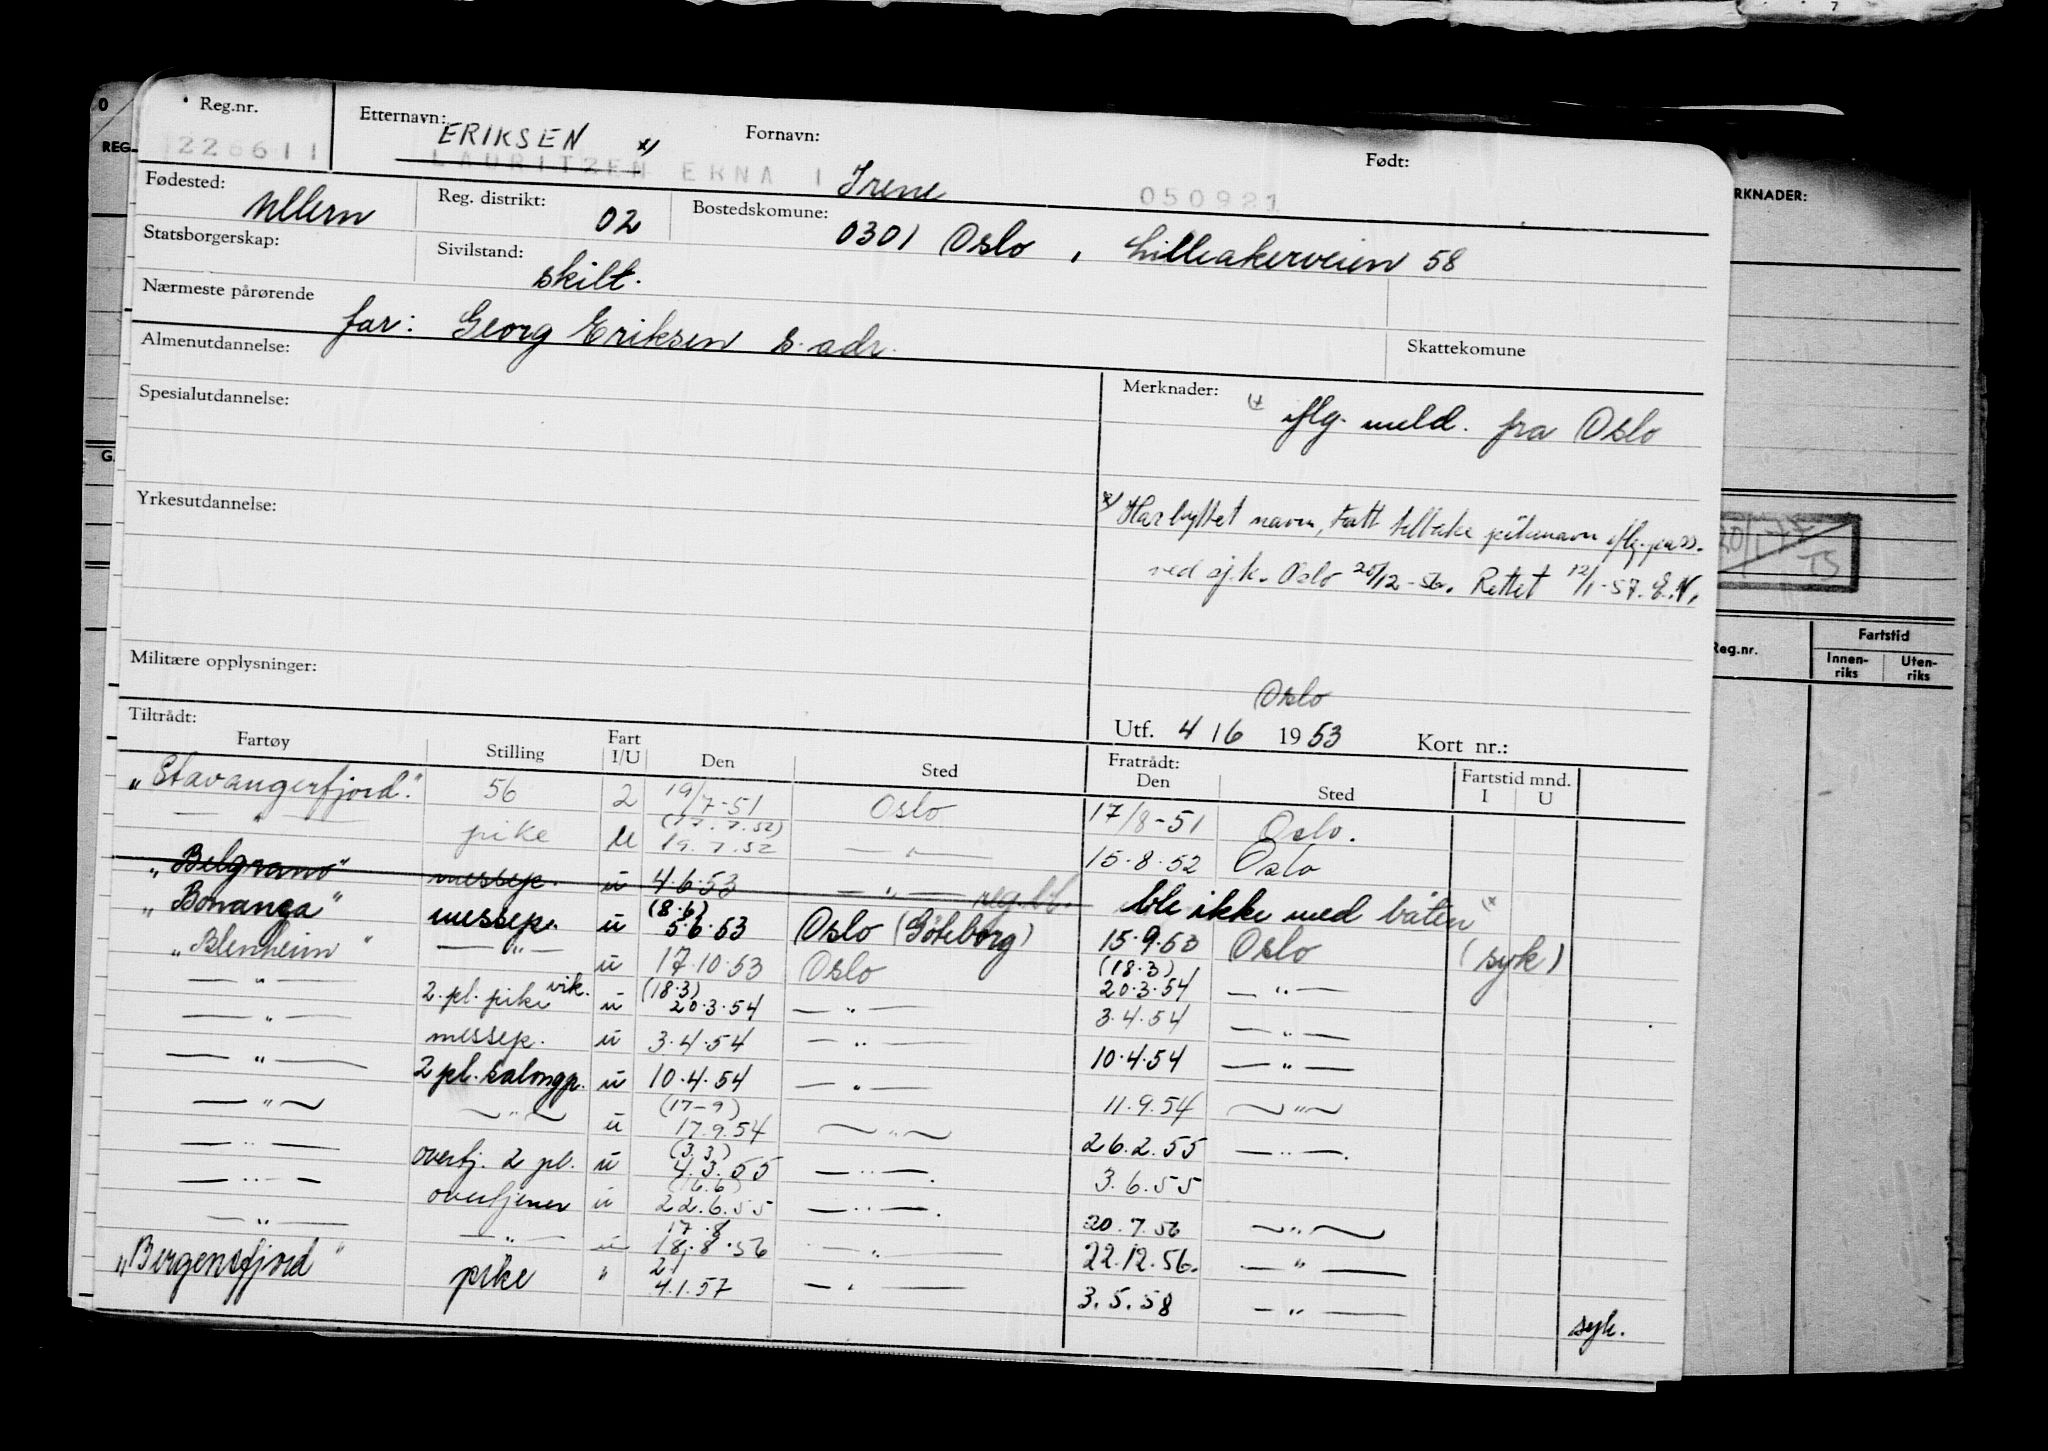 Reg.nr. Etternavn: ERIKSEN x) Fornavn: Født:
226611 LAURITZEN ERNA I Irene 050921
Fødested: Ullern Reg. distrikt: 02 Bostedskomune: 0301 Oslo, Lilleakerveien 58
Statsborgerskap: Sivilstand: skilt.
Nærmeste pårørende far: Georg Eriksen s. adr. Skattekomune
Almenutdannelse:
Spesialutdannelse:
Merknader: x) iflg. meld. fra Oslo
Yrkesutdannelse:
x) Har byttet navn, tatt tilbake pikenavn iflg. pass.
ved sj.k. Oslo 20/12-56. Rettet 12/1-57. E.N.
Militære opplysninger:
Oslo
Utf. 4/6 1953 Kort nr.:
Tiltrådt: Fratrådt:
Fartøy Stilling Fart I/U Den Sted Den Sted Fartstid mnd. I U
"Stavangerfjord" 56 2 19/7-51 Oslo 17/8-51 Oslo.
— " — pike u (17.7.52) 19.7.52 — " — 15.8.52 Oslo
"Belgrano" messep. u 4.6.53 — " — reg.bl. ble ikke med båten x
"Bonanza" messep. u (8.6) 5.6.53 Oslo (Göteborg) 15.9.53 Oslo (syk)
"Blenheim" — " — u 17.10.53 Oslo (18.3) 20.3.54 — " —
— " — 2. pl. pike vik. u (18.3) 20.3.54 — " — 3.4.54 — " —
— " — messep. u 3.4.54 — " — 10.4.54 — " —
— " — 2 pl. salongp. u 10.4.54 — " — 11.9.54 — " —
— " — — " — u (17-9) 17.9.54 — " — 26.2.55 — " —
— " — overtj. 2 pl. u (3.3) 4.3.55 — " — 3.6.55
— " — overtjener u (16.6) 22.6.55 — " — 20.7.56 — " —
— " — — " — u 17.8 18.8.56 — " — 22.12.56. — " —
"Bergensfjord" pike " 2/1 4.1.57 — " — 3.5.58 — " — syk.
0
REG-
G.
RKNADER:
TS
Reg.nr. Fartstid
Innen-
riks
Uten-
riks